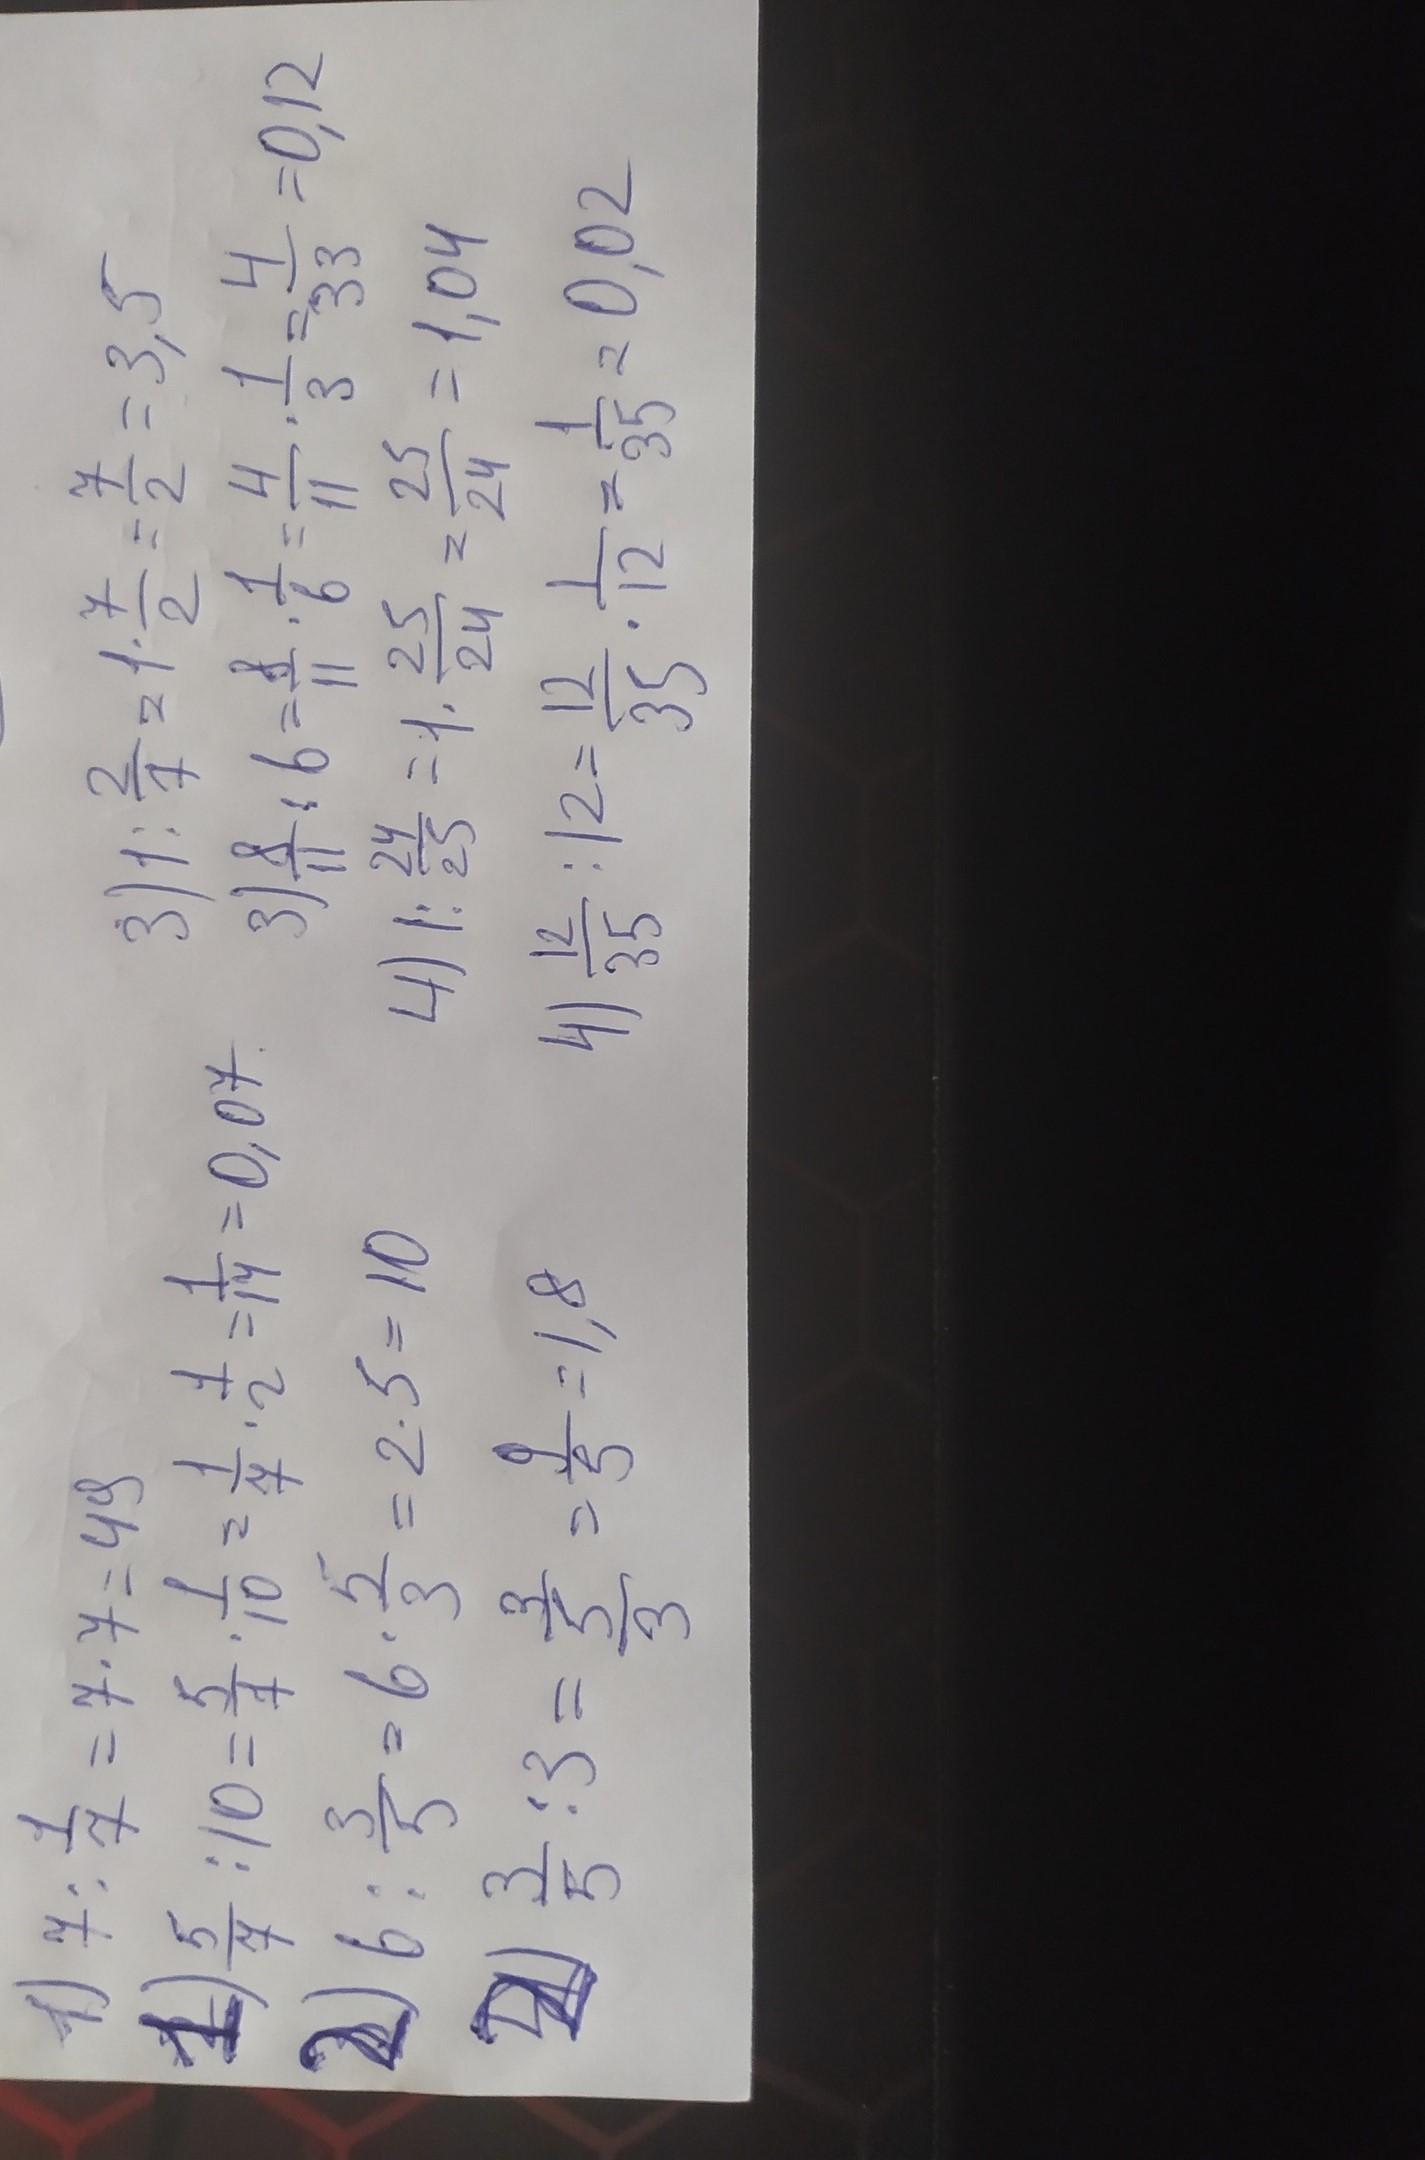 1) 7 : 1/7 = 7 · 7 = 49
1) 5/7 : 10 = 5/7 · 1/10 = 1/7 · 1/2 = 1/14 = 0,07
2) 6 : 3/5 = 6 · 5/3 = 2 · 5 = 10
2) 3/5 : 3 = 3/5/3 = 9/5 = 1,8
3) 1 : 2/7 = 1 · 7/2 = 7/2 = 3,5
3) 8/11 : 6 = 8/11 · 1/6 = 4/11 · 1/3 = 4/33 = 0,12
4) 1 : 24/25 = 1 · 25/24 = 25/24 = 1,04
4) 12/35 : 12 = 12/35 · 1/12 = 1/35 = 0,02